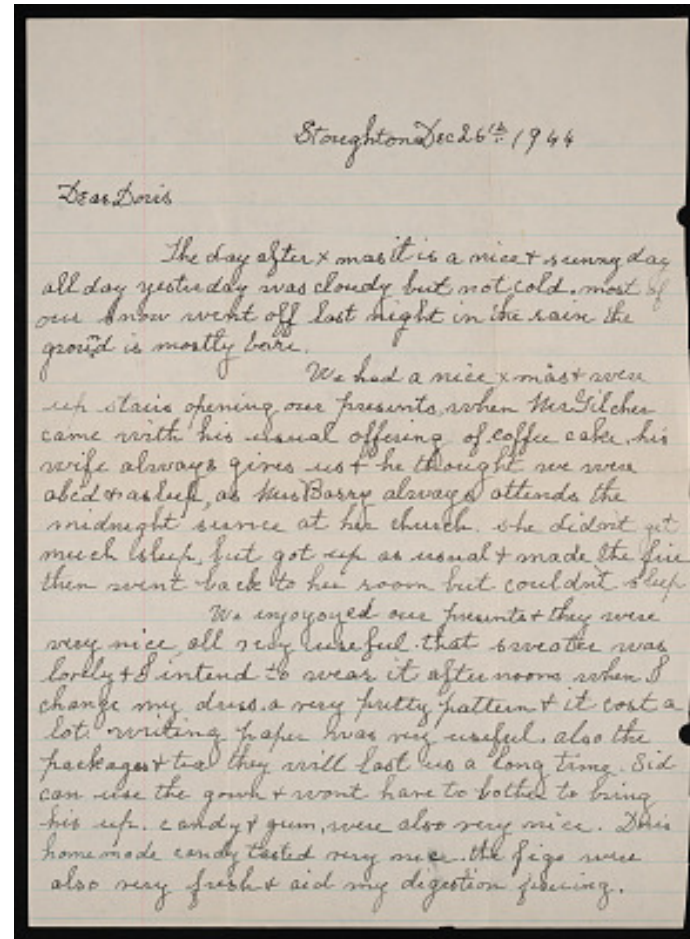 Stoughton Dec 26th. 1944
Dear Doris
The day after x mas it is a nice + sunny day
all day yesterday was cloudy but not cold. most of
our snow went off last night in the rain the
ground is mostly bare.
We had a nice x mas + were
up stairs opening our presents, when Mr Gilcher
came with his usual offering of coffee cake. his
wife always gives us + he thought we were
abed + asleep, as Mrs Barry always attends the
midnight service at her church. she didn't get
much sleep, but got up as usual + made the fire
then went back to her room but couldnt sleep
We enjoyoyed our presents + they were
very nice, all very useful. that sweater was
lovely + I intend to wear it afternoons when I
change my dress. a very pretty pattern + it cost a
lot. writing paper was very useful. also the
packages + tea they will last us a long time. Sid
can use the gown + wont have to bother to bring
his up. candy + gum, were also very nice. Doris
homemade candy tasted very nice. the figs were
also very fresh + aid my digestion